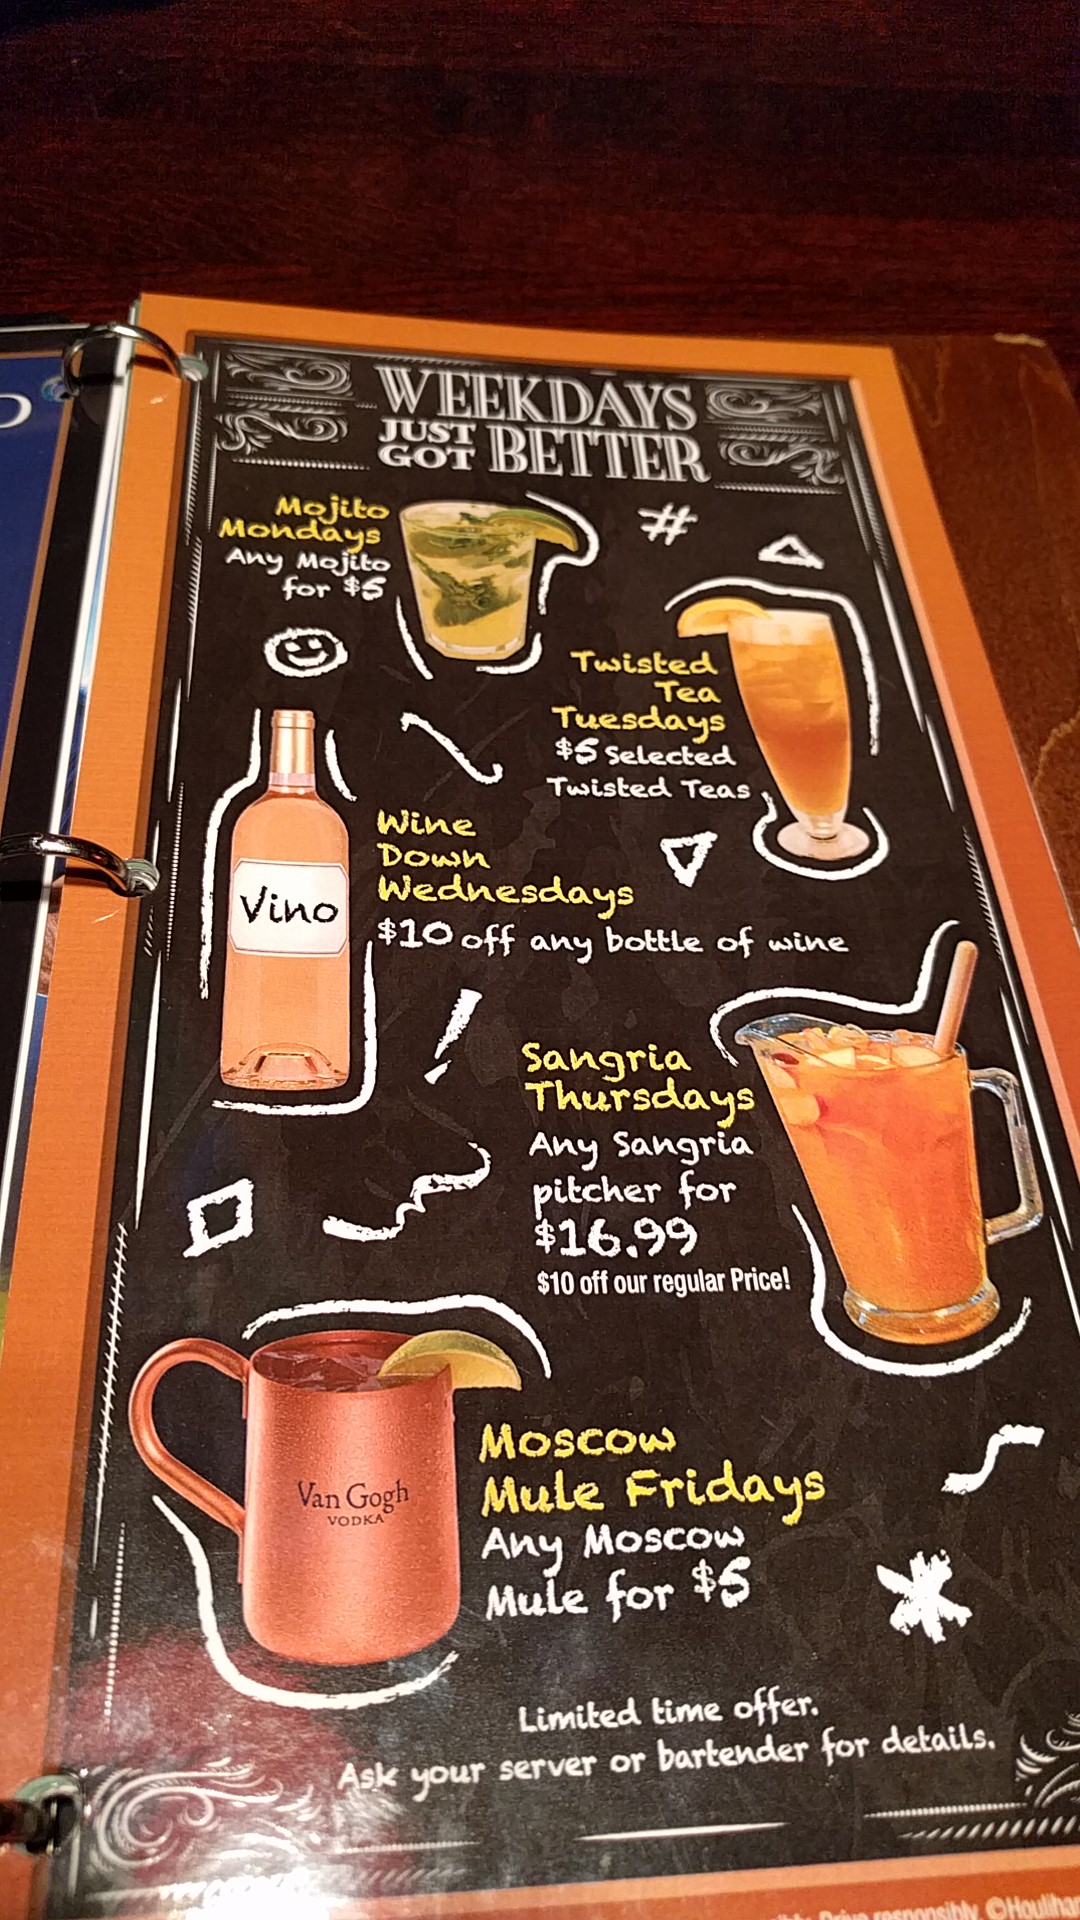 WEEKDAYS
JUST GOT BETTER
Mojito
Mondays
Any Mojito
for $5
#
Twisted
Tea
Tuesdays
$5 Selected
Twisted Teas
Wine
Down
Wednesdays
$10 off any bottle of wine
Vino
!
Sangria
Thursdays
Any Sangria
pitcher for
$16.99
$10 off our regular Price!
Van Gogh
VODKA
Moscow
Mule Fridays
Any Moscow
Mule for $5
Limited time offer.
Ask your server or bartender for details.
Drive responsibly. ©Houlihan